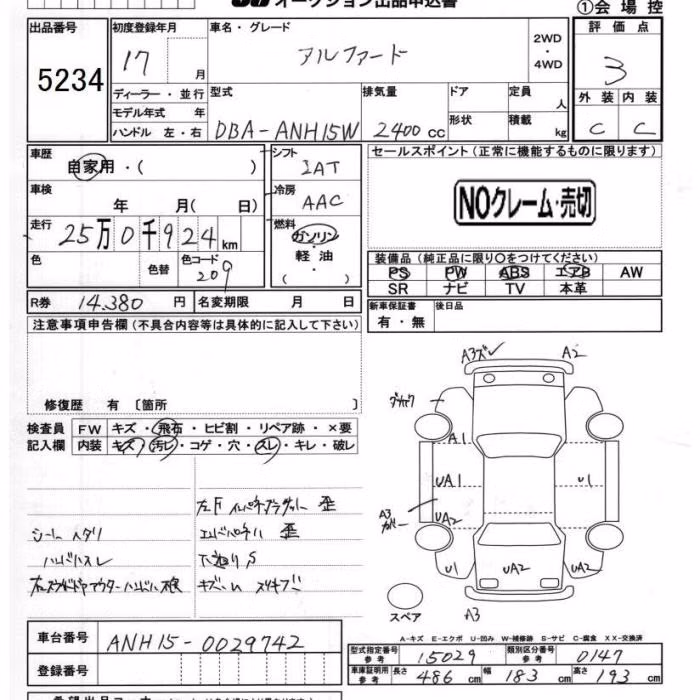 オークション出品申込書
①会場控
出品番号
5234
初度登録年月
17 月
車名・グレード
アルファード
2WD
・
4WD
評価点
3
ディーラー・並行
モデル年式 年
ハンドル 左・右
型式
DBA-ANH15W
排気量
2400 cc
ドア
形状
定員 人
積載 kg
外装 内装
C C
車歴
自家用・( )
シフト
IAT
セールスポイント(正常に機能するものに限ります)
NOクレーム・売切
車検
年 月( 日)
冷房
AAC
走行
25万0千924km
燃料
ガソリン
軽・油
( )
色
色替
色コード
209
装備品(純正品に限り○をつけてください)
PS PW ABS エアB AW
SR ナビ TV 本革
R券 14,380 円
名変期限 月 日
新車保証書
有・無
後日品
注意事項申告欄(不具合内容等は具体的に記入して下さい)
修復歴 有〔箇所 〕
検査員
記入欄
FW キズ・飛石・ヒビ割・リペア跡・×要
内装 キズ・汚レ・コゲ・穴・スレ・キレ・破レ
シートヘタリ
ハンドルスレ
歪
歪
A3
A2
A1
UA1
U1
A3
カバー
UA2
U1
UA2
UA2
スペア
A3
A-キズ E-エクボ U-凹み W-補修跡 S-サビ C-腐食 XX-交換済
車台番号
ANH15-0029742
登録番号
型式指定番号
参考
15029
類別区分番号
参考
0147
車庫証明用
参考
長さ 486 cm
幅 183 cm
高さ 193 cm